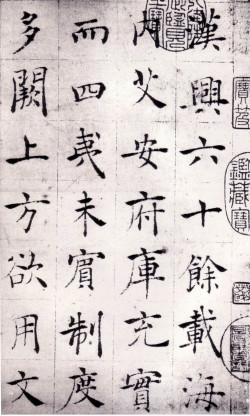 漢興六十餘載海
內艾安府庫充實
而四夷未賓制度
多闕上方欲用文
鑑藏寶